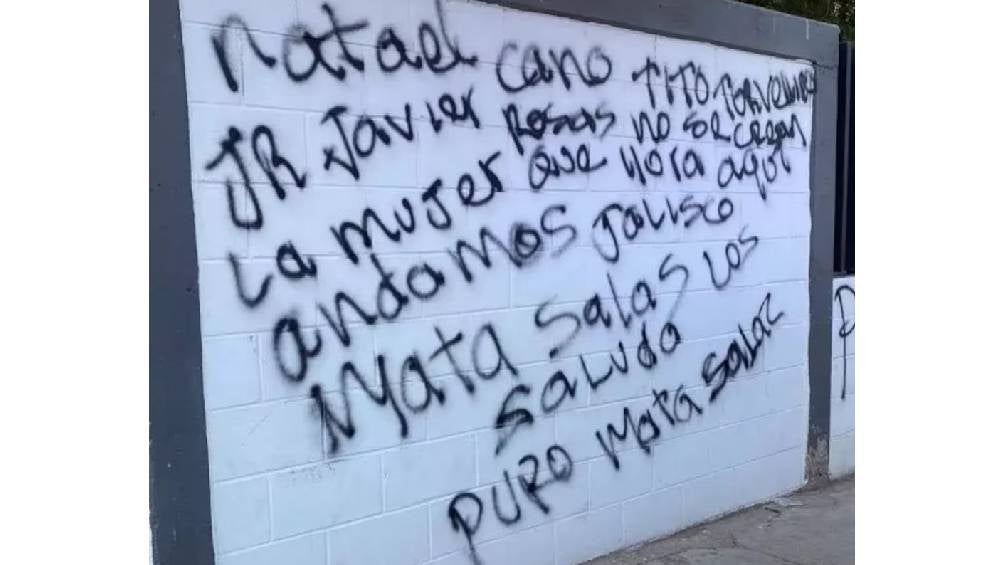 Rafael cano TITO TORVELLINO
JR Javier Rosas no se crean
La mujer que llora aqui
andamos Jalisco
Mata Salas Los
Saluda
Puro Mata Salaz